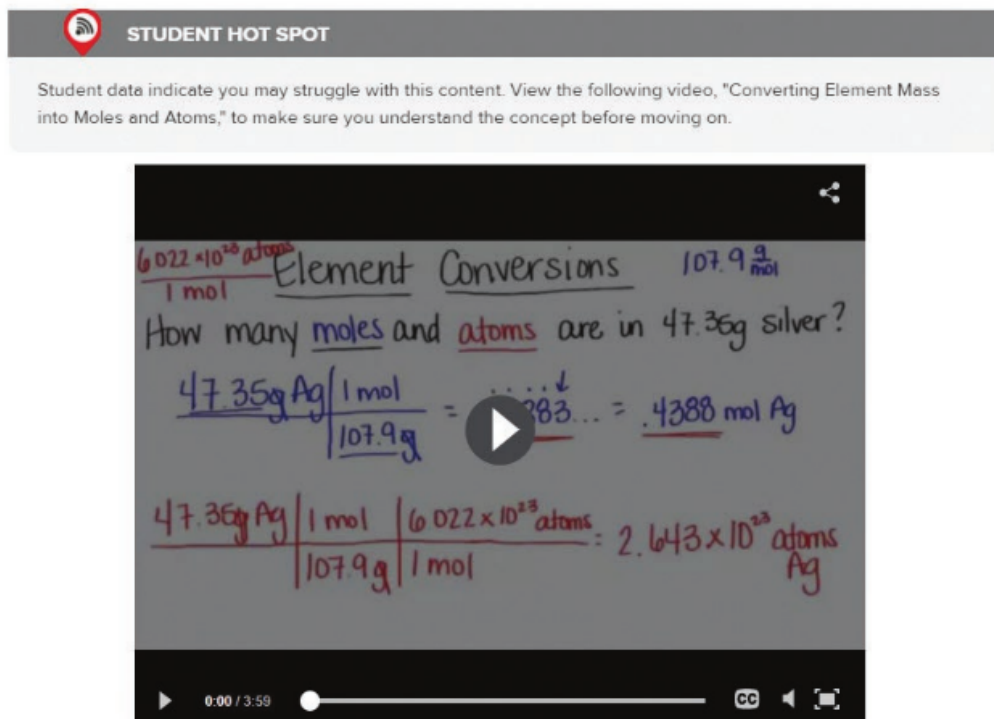 STUDENT HOT SPOT
Student data indicate you may struggle with this content. View the following video, "Converting Element Mass
into Moles and Atoms," to make sure you understand the concept before moving on.
6.022 × 10²³ atoms
1 mol
Element Conversions
107.9 g/mol
How many moles and atoms are in 47.35g silver?
47.35g Ag | 1 mol = 383... = .4388 mol Ag
107.9g
47.35g Ag | 1 mol | 6.022 × 10²³ atoms = 2.643 × 10²³ atoms
107.9g | 1 mol Ag
0:00 / 3:59
CC